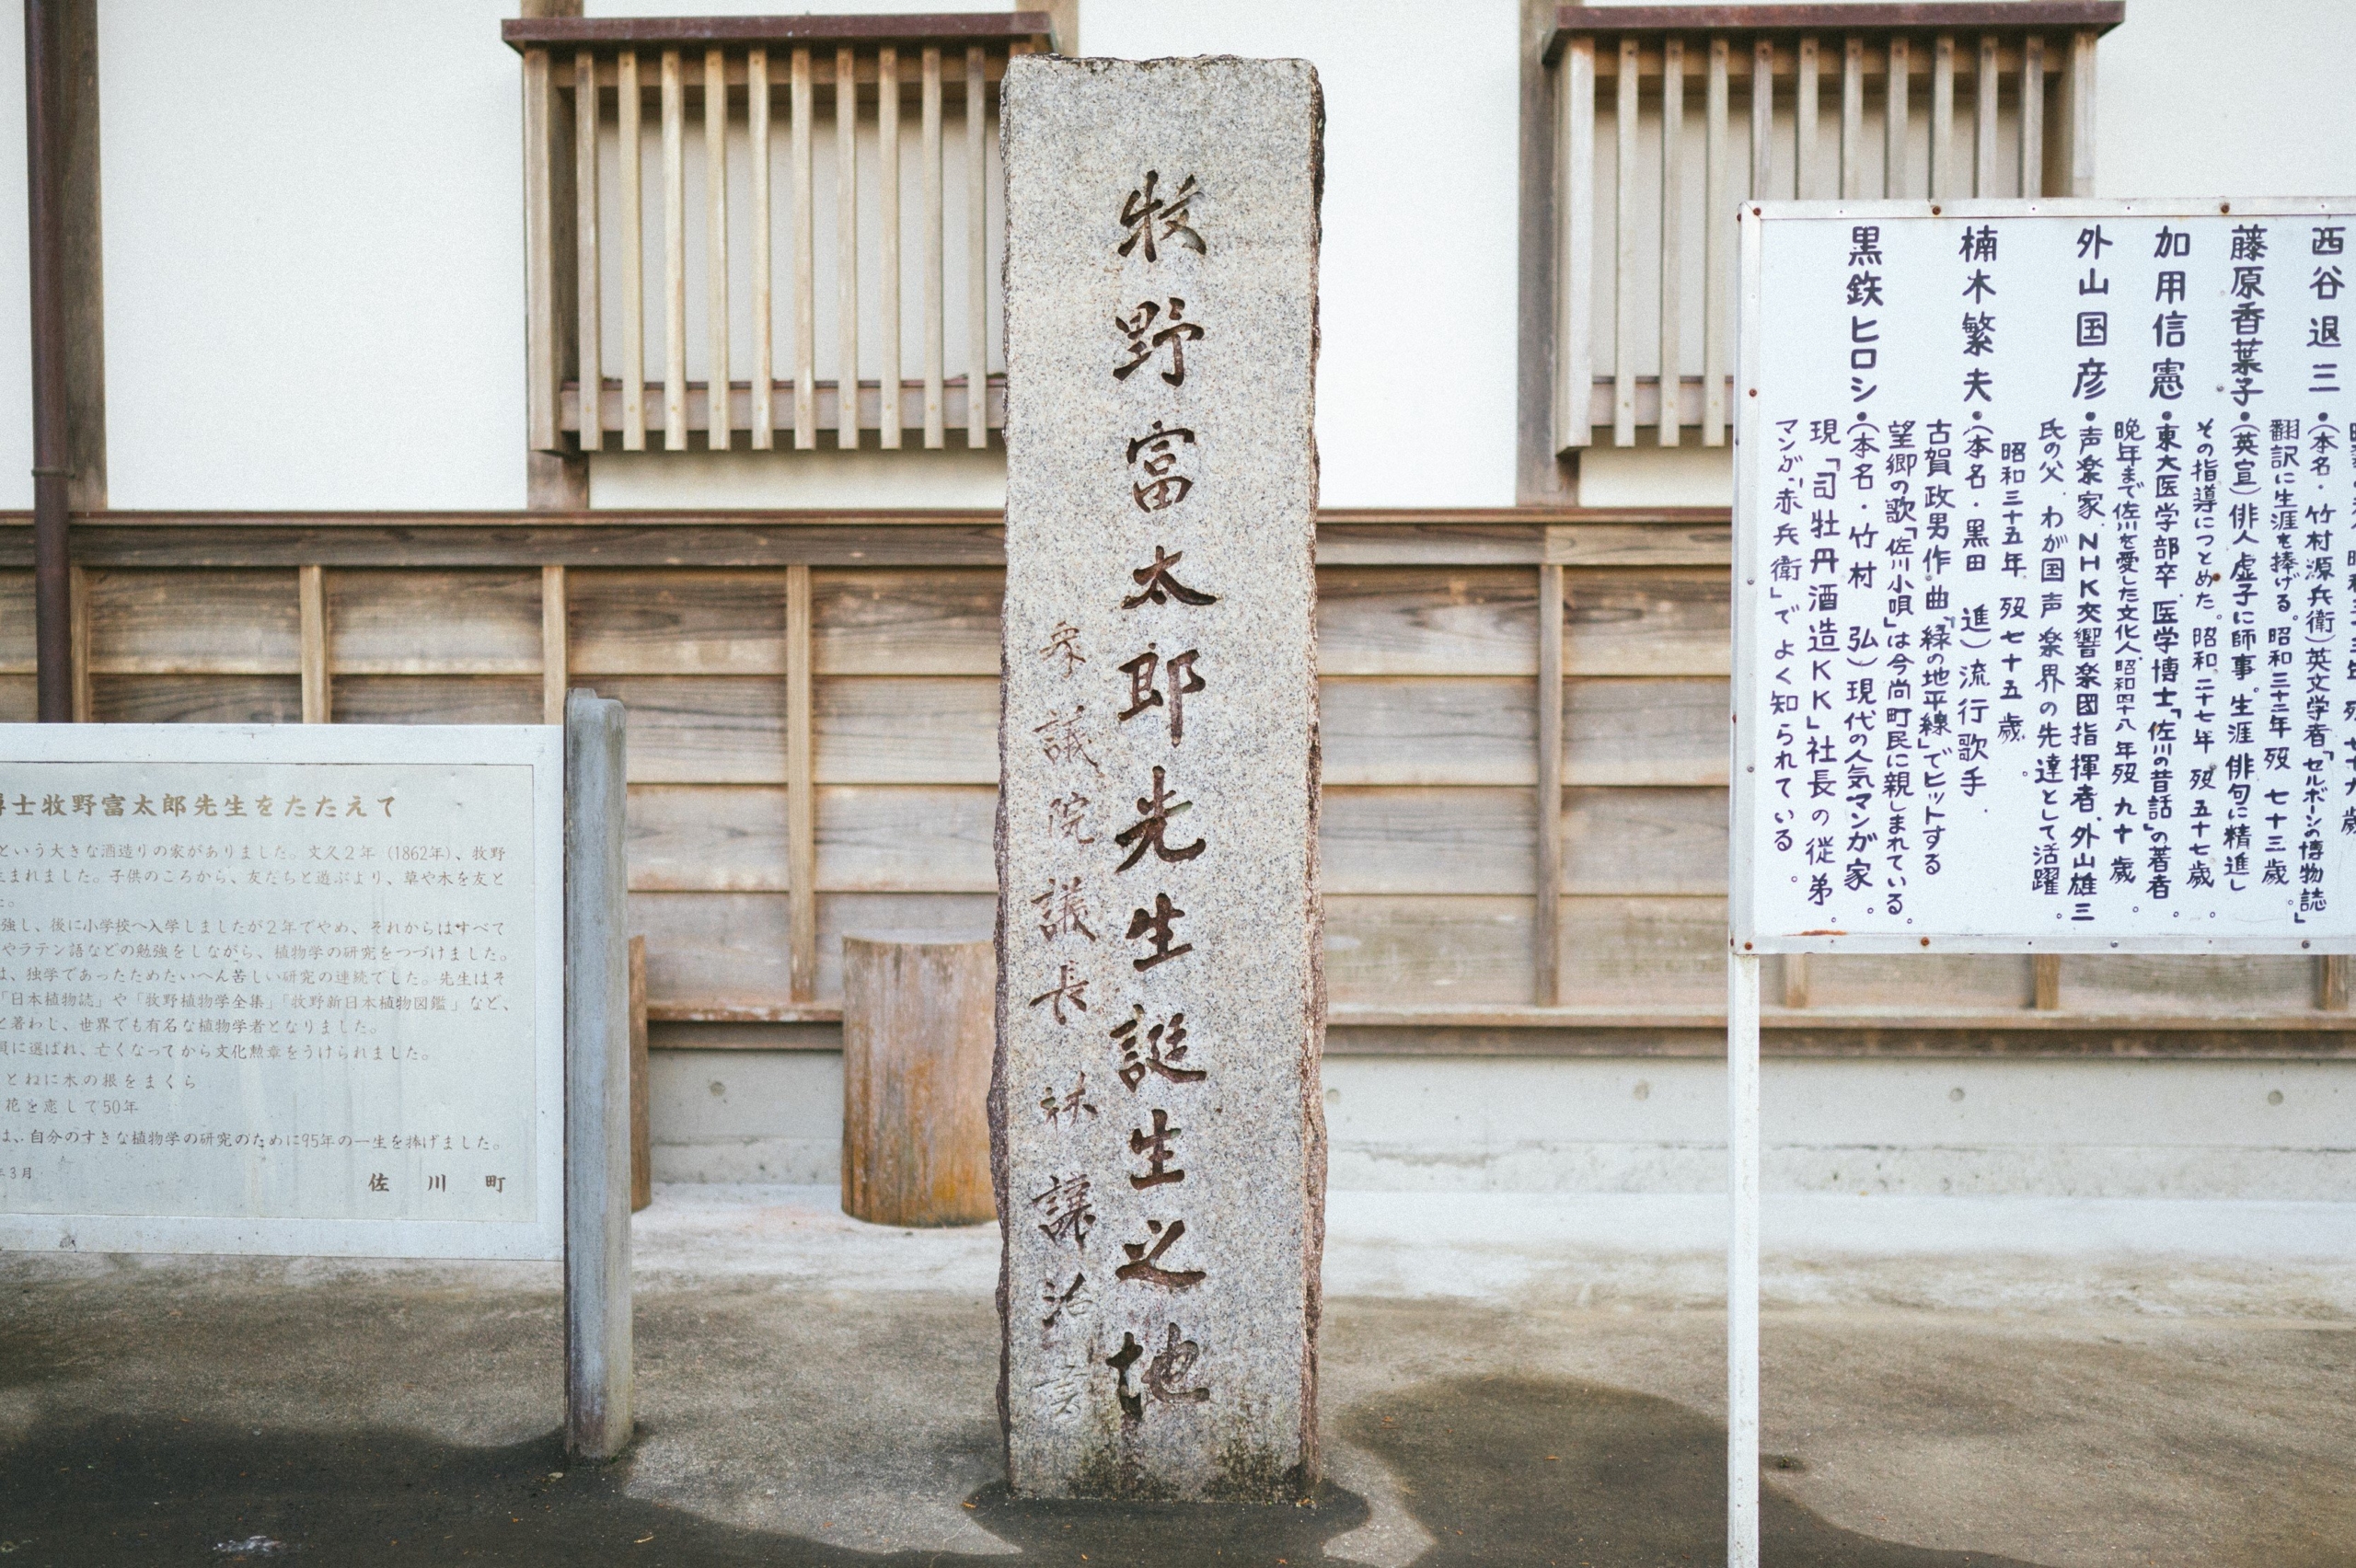 博士牧野富太郎先生をたたえて
という大きな酒造りの家がありました。文久2年(1862年)、牧野
生まれました。子供のころから、友だちと遊ぶより、草や木を友と
た。
強し、後に小学校へ入学しましたが2年でやめ、それからはすべて
やラテン語などの勉強をしながら、植物学の研究をつづけました。
は、独学であったためたいへん苦しい研究の連続でした。先生はそ
「日本植物誌」や「牧野植物学全集」「牧野新日本植物図鑑」など、
と著わし、世界でも有名な植物学者となりました。
員に選ばれ、亡くなってから文化勲章をうけられました。
とねに木の根をまくら
花を恋して50年
は、自分のすきな植物学の研究のために95年の一生を捧げました。
年3月
佐川町
牧野富太郎先生誕生之地
衆議院議長 林 譲治書
西谷退三・(本名・竹村源兵衛)英文学者「セルボーンの博物誌」
翻訳に生涯を捧げる。昭和三十二年 歿 七十三歳。
藤原香葉子・(英宣)俳人虚子に師事。生涯俳句に精進し
その指導につとめた。昭和二十七年 歿 五十七歳。
加用信憲・東大医学部卒、医学博士「佐川の昔話」の著者。
晩年まで佐川を愛した文化人昭和四十八年歿 九十歳。
外山国彦・声楽家、NHK交響楽団指揮者、外山雄三
氏の父、わが国声楽界の先達として活躍。
昭和三十五年 歿 七十五歳。
楠木繁夫・(本名・黒田 進)流行歌手.
古賀政男作曲「緑の地平線」でヒットする
望郷の歌「佐川小唄」は今尚町民に親しまれている。
黒鉄ヒロシ・(本名・竹村 弘)現代の人気マンガ家。
現「司牡丹酒造KK」社長の従弟。
マンガ「赤兵衛」でよく知られている。